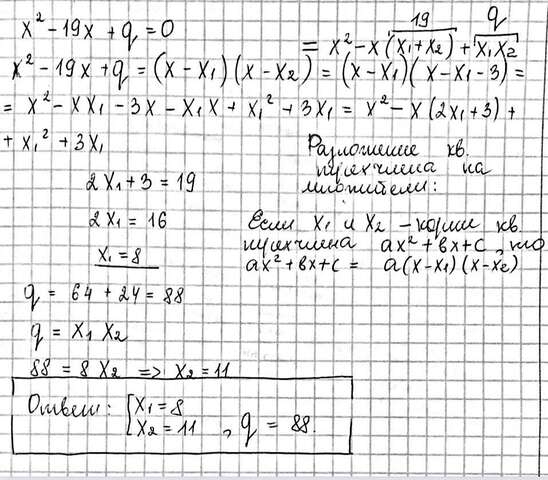 x² - 19x + q = 0
19 q
= x² - x (x₁ + x₂) + x₁x₂
x² - 19x + q = (x - x₁)(x - x₂) = (x - x₁)(x - x₁ - 3) =
= x² - xx₁ - 3x - x₁x + x₁² + 3x₁ = x² - x(2x₁+3) +
+ x₁² + 3x₁
Разложение кв.
трехчлена на
множители:
2x₁ + 3 = 19
2x₁ = 16
x₁ = 8
Если x₁ и x₂ - корни кв.
трехчлена ax² + bx + c, то
ax² + bx + c = a(x - x₁)(x - x₂)
q = 64 + 24 = 88
q = x₁ x₂
88 = 8 x₂ => x₂ = 11
Ответ: [x₁ = 8
x₂ = 11 , q = 88.